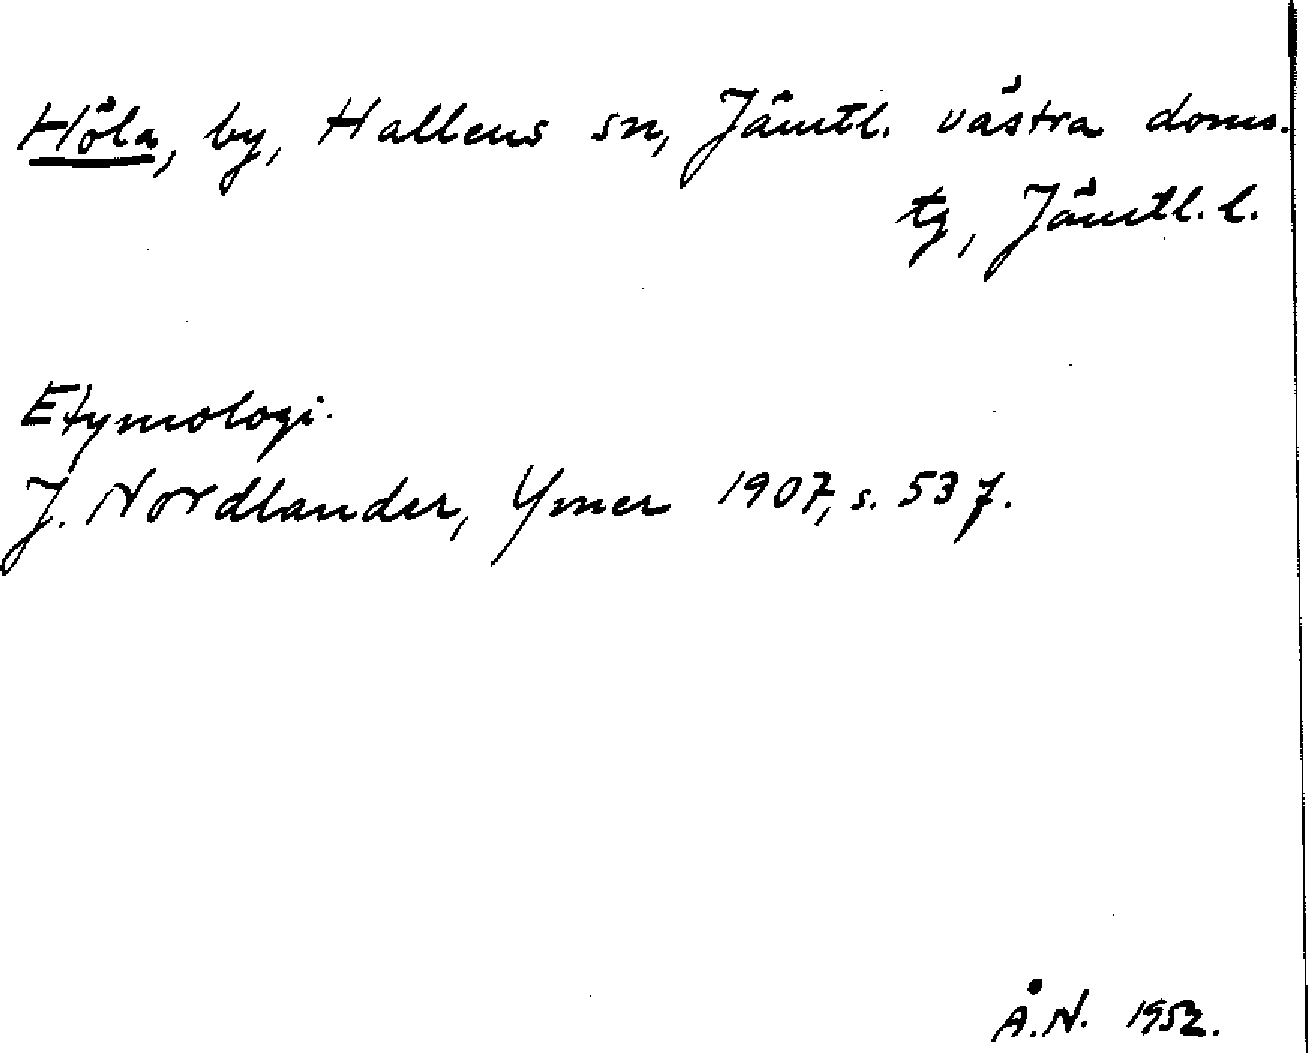 Höla, by, Hallens sn, Jämtl. västra doms.
tg, Jämtl. l.
Etymologi.
J. Nordlander, Ymer 1907, s. 53 f.
Å.N. 1952.